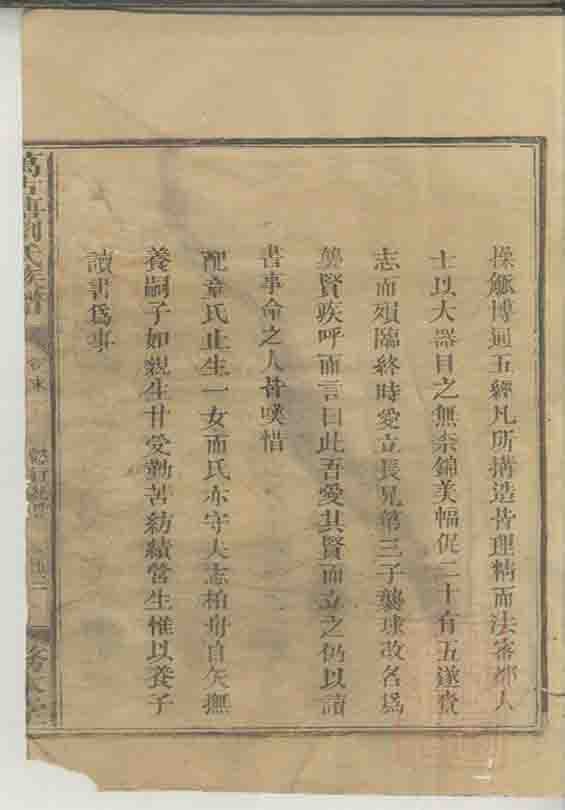 操觚博通五經凡所搆造皆理精而法密都人
士以大器目之無柰錦美幅促二十有五遂賫
志而殞臨終時愛立長兄第三子襲球改名爲
襲賢疾呼而言曰此吾愛其賢而立之仍以讀
書事命之人皆嘆惜
配章氏止生一女而氏亦守夫志柏舟自矢撫
養嗣子如親生甘受勤苦紡績營生惟以養子
讀書爲事
劉氏族譜
卷末